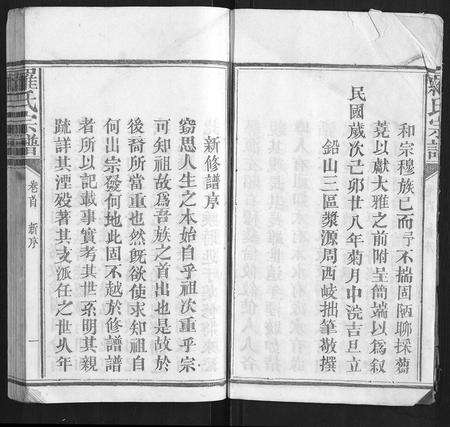 羅氏宗譜
和宗穆族已而予不揣固陋聊採蕘
蕘以獻大雅之前附呈簡端以爲叙
民國歲次己卯廿八年菊月中浣吉旦立
鉛山三區漿源周西岐拙筆敬撰
新修譜序
竊思人生之本始自乎祖次重乎宗
可知祖故爲吾族之首出也是故於
後裔所當重也然既欲使求知祖自
何出宗發何地此固不越於修譜譜
者所以記載事實考其世系明其親
疏詳其湮沒著其支派任之世久年
羅氏宗譜
卷首
新序
一